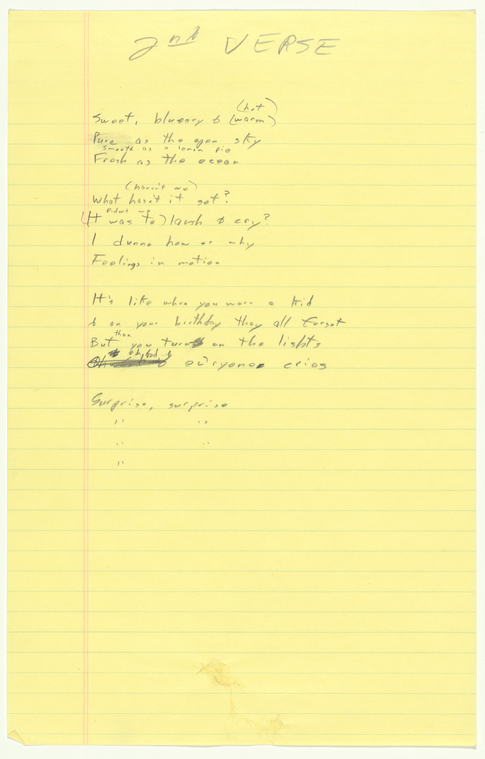 2nd VERSE
(hot)
Sweet, blueberry & (warm)
Pure as the open sky
smooth as a lemon pie
Fresh as the ocean
(haven't we)
What hasn't it got?
It was to) laugh & cry?
I dunno how or why
Feelings in motion
It's like when you were a kid
& on your birthday they all forgot
then
But you turn on the lights
& everyone cries
Surprise, surprise
" "
" "
"